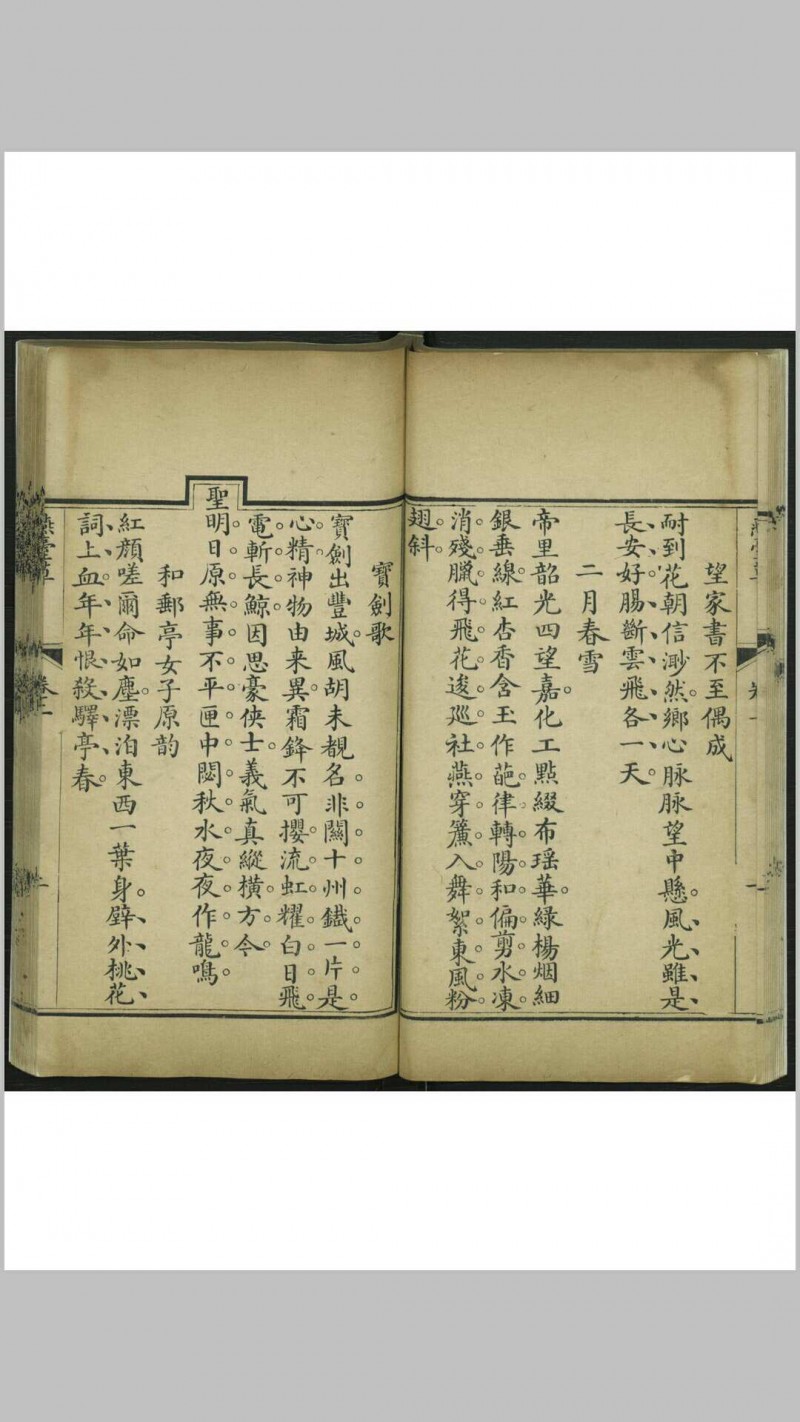 望家書不至偶成
耐到花朝信渺然。鄉心脉脉望中懸。風光雖是
長安好。腸斷雲飛各一天。
二月春雪
帝里韶光四望嘉。化工點綴布瑶華。綠楊烟細
銀垂線。紅杏香含玉作葩。律轉陽和偏剪水。凍
消殘臘得飛花。逡巡社燕穿簾入。舞絮東風粉
翅斜。
寶劍歌
寶劍出豐城。風胡未覩名。非關十州鐵。一片是
心精。神物由来異。霜鋒不可攖。流虹耀白日。飛
電斬長鯨。因思豪俠士。義氣真縱橫。方今
聖明日。原無事不平。匣中閟秋水。夜夜作龍鳴。
和郵亭女子原韵
紅顔嗟爾命如塵。漂泊東西一葉身。壁外桃花
詞上血。年年恨殺驛亭春。
卷一